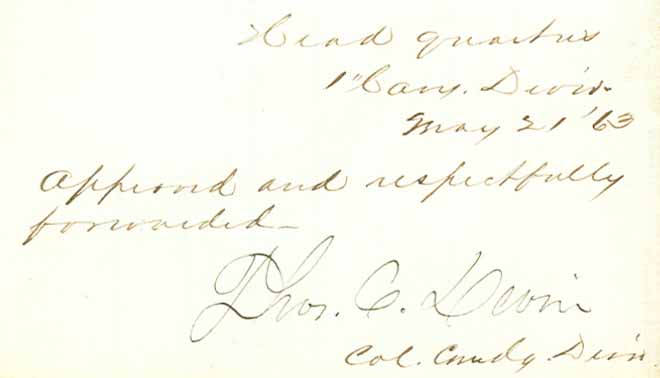 Head quarters
1" Cavy. Divis.
May 21 '63
Approved and respectfully
forwarded—
Thos. C. Devin
Col. Comdg. Divn.